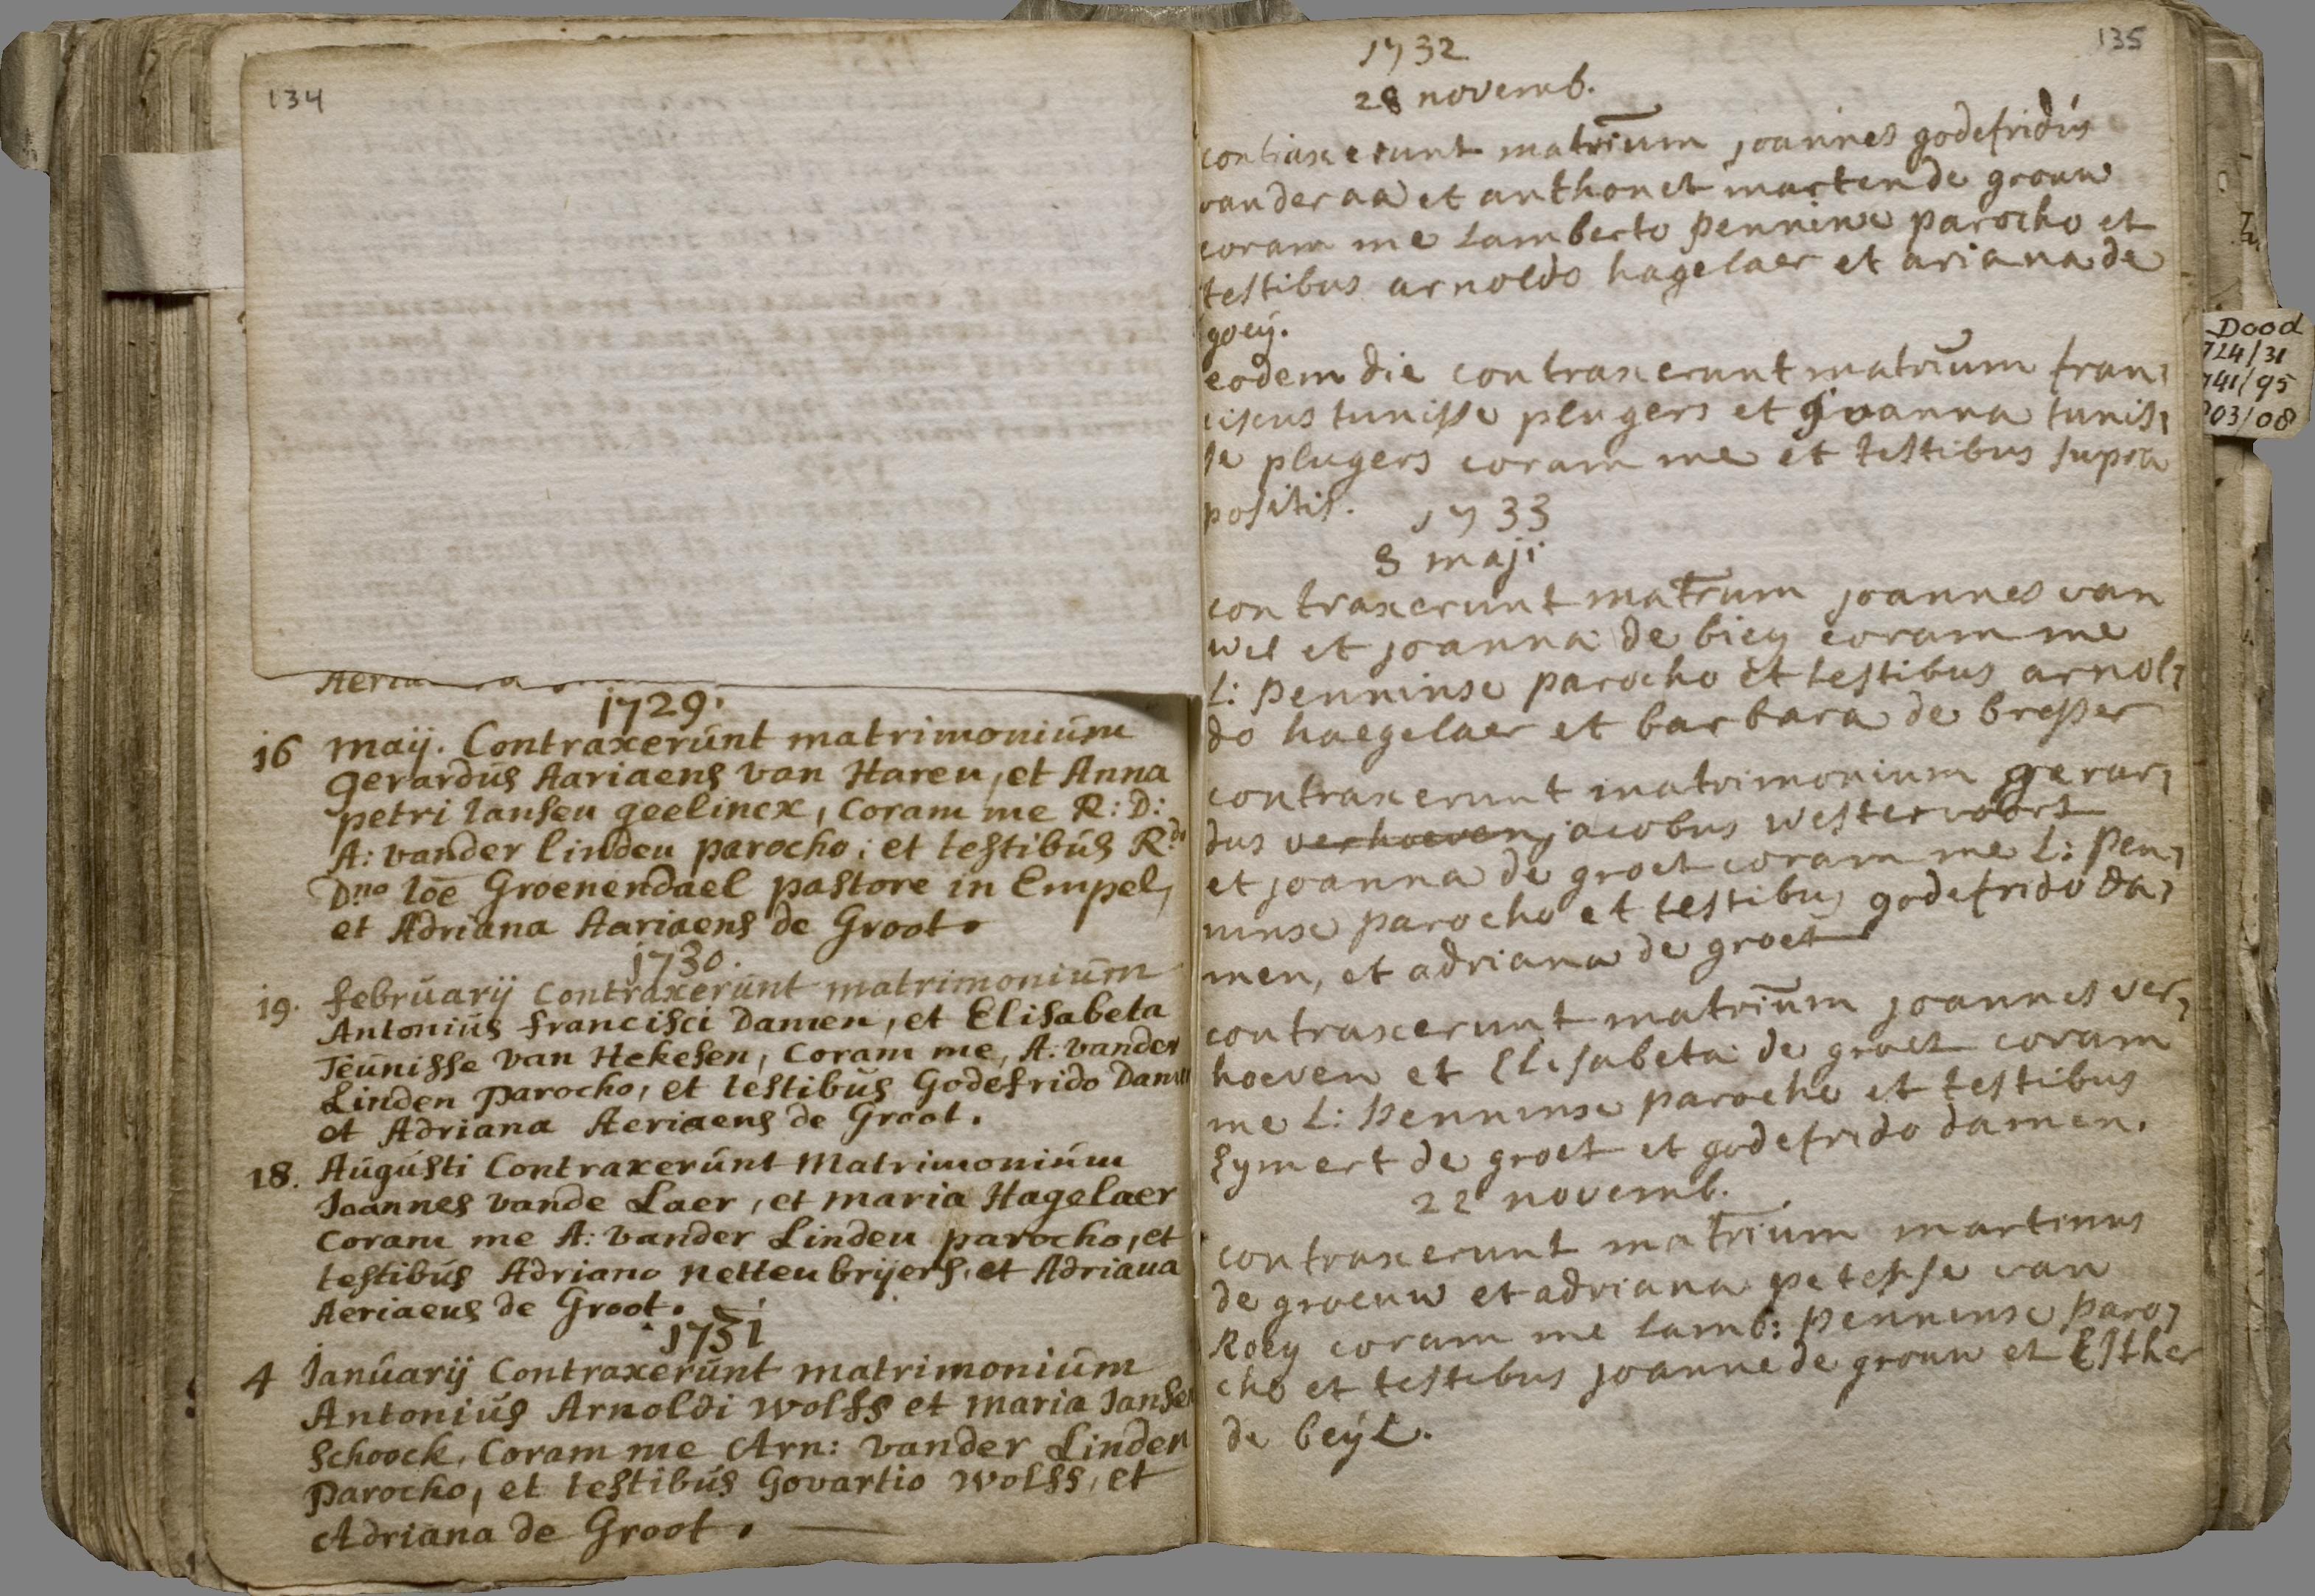 134
1729.
16 maij. Contraxerunt matrimonium
Gerardus Aariaens van Haren, et Anna
petri Jansen geelincx, Coram me R: D:
A: vander linden parocho, et testibus R.do
Dno Joe Groenendael pastore in Empel,
et Adriana Aariaens de Groot.
1730.
19. februarij Contraxerunt matrimonium
Antonius francisci Damen, et Elisabeta
Teunisse van Hekesen, Coram me, A. vander
Linden Parocho, et testibus Godefrido Damen
et Adriana Aeriaens de Groot.
18. Augusti Contraxerunt Matrimonium
Joannes vande Laer, et maria Hagelaer
Coram me A: vander Linden parocho, et
testibus Adriano netten brijers, et Adriana
Aeriaens de Groot.
1731
4 Januarij Contraxerunt matrimonium
Antonius Arnoldi wolfs et maria Jansen
Schoock, Coram me Arn: vander Linden
Parocho, et testibus Govartio wolfs, et
Adriana de Groot.
135
1732
28 novemb.
contraxerunt matrium joannes godefridus
van der aa et anthonet marten de grouw
coram me Lamberto Penninx parocho et
testibus arnoldo hagelaer et ariana de
goeij.
eodem die contraxerunt matrium fran,
ciscus tunisse plugers et joanna tunis,
se plugers coram me et testibus supra
positis.
1733
8 maji
contraxerunt matrium joannes van
wel et joanna de biey coram me
L: Penninx parocho et testibus arnol,
do haegelaer et barbara de bresser
contraxerunt matrimonium gerar,
dus verhoeven jacobus westervoort
et joanna de groet coram me L: Pen,
ninx parocho et testibus godefrido da,
men, et adriana de groet
contraxerunt matrium joannes ver,
hoeven et Elisabeta de groet coram
me L: Penninx parocho et testibus
Eymert de groet et godefrido damen.
22 novemb.
contraxerunt matrium martinus
de groeuw et adriana petesse van
Roey coram me Lamb: Penninx paro,
cho et testibus joanne de grouw et Esther
de beÿl.
Dood
724/31
741/95
803/08